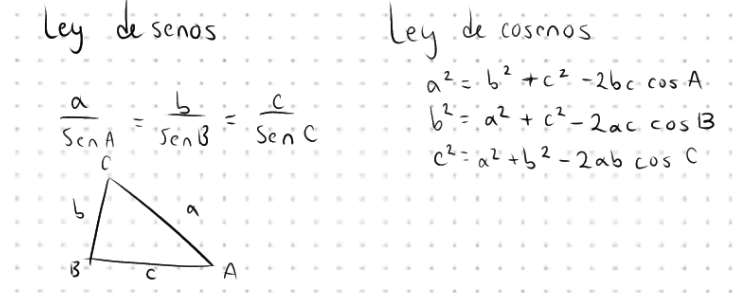 Ley de senos
a/Sen A = b/Sen B = c/Sen C
C
b a
B c A
Ley de cosenos
a² = b² + c² - 2bc cos A
b² = a² + c² - 2ac cos B
c² = a² + b² - 2ab cos C